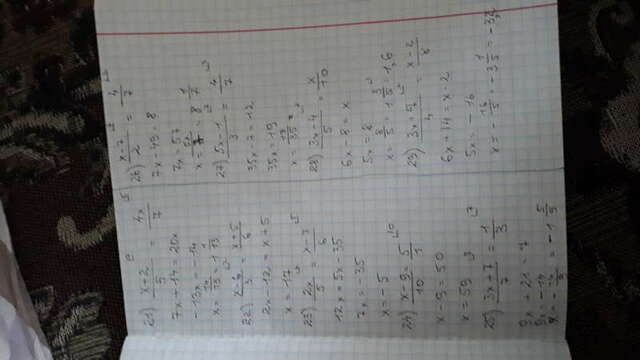 21) (x+2)/5 = 4x/7
7x + 14 = 20x
-13x = -14
x = 14/13 = 1 1/13
22) (x-6)/3 = (x+5)/6
2x - 12 = x + 5
x = 17
23) 2x/5 = (x-7)/6
12x = 5x - 35
7x = -35
x = -5
24) (x-9)/10 = 5/1
x - 9 = 50
x = 59
25) (3x+7)/7 = 1/3
9x + 21 = 7
9x = -14
x = -14/9 = -1 5/9
26) (x-7)/2 = 4/7
7x - 49 = 8
7x = 57
x = 57/7 = 8 1/7
27) (5x-1)/3 = 4/7
35x - 7 = 12
35x = 19
x = 19/35
28) (3x-4)/5 = x/10
6x - 8 = x
5x = 8
x = 8/5 = 1 3/5 = 1,6
29) (3x+7)/4 = (x-2)/8
6x + 14 = x - 2
5x = -16
x = -16/5 = -3 1/5 =